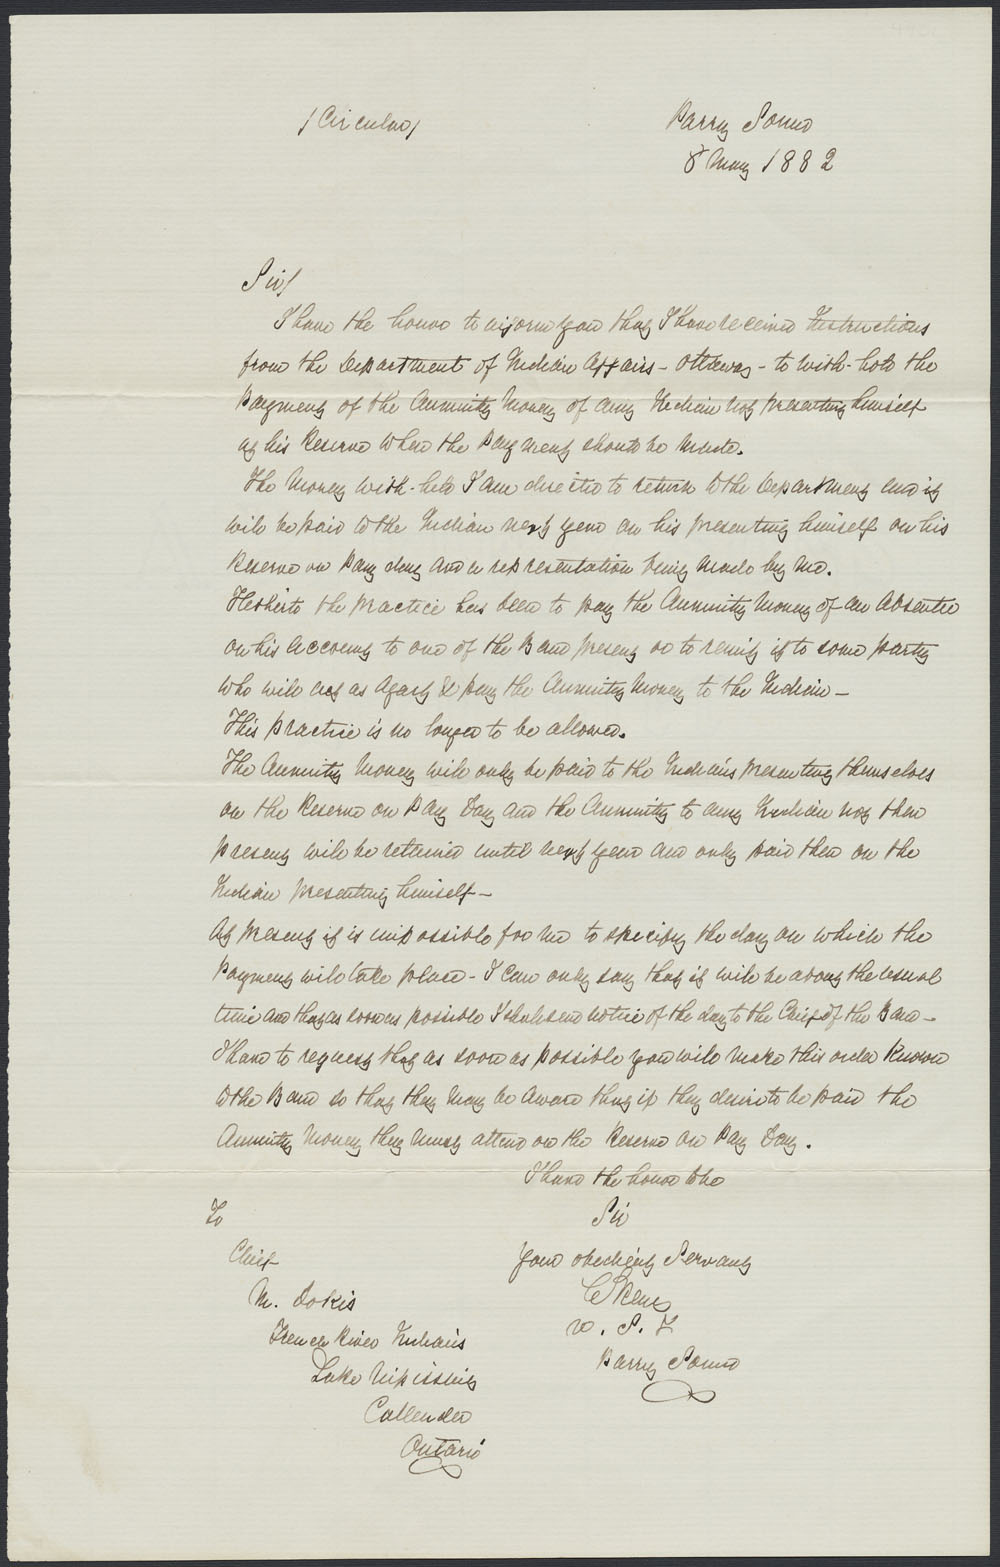 /Circular/
Parry Sound
8 May 1882
Sir/
I have the honor to inform you that I have received Instructions
from the Department of Indian Affairs - Ottawa - to with-hold the
Payment of the Annuity Money of any Indian not presenting himself
at his Reserve when the Payment should be made.
The Money with-held I am directed to return to the Department and it
will be paid to the Indian next year on his presenting himself on his
Reserve on Pay day and a representation being made by me.
Hitherto the practice has been to pay the Annuity Money of an Absentee
on his account to one of the Band present or to remit it to some party
who will act as Agent & pay the Annuity Money to the Indian -
This practice is no longer to be allowed.
The Annuity Money will only be paid to the Indians presenting themselves
on the Reserve on Pay Day and the Annuity to any Indian not then
present will be retained until next year and only paid then on the
Indian presenting himself -
At present it is impossible for me to specify the day on which the
Payment will take place - I can only say that it will be about the usual
time and that as soon as possible I shall send notice of the day to the Chief of the Band -
I have to request that as soon as possible you will make this order Known
to the Band so that they may be aware that if they desire to be paid the
Annuity Money they must attend on the Reserve on Pay Day.
I have the honor to be
To
Sir
Chief
Your obedient Servant
M. Dokis
C Skene
French River Indians
V. S. I
Lake Nipissing
Parry Sound
Callender
Ontario